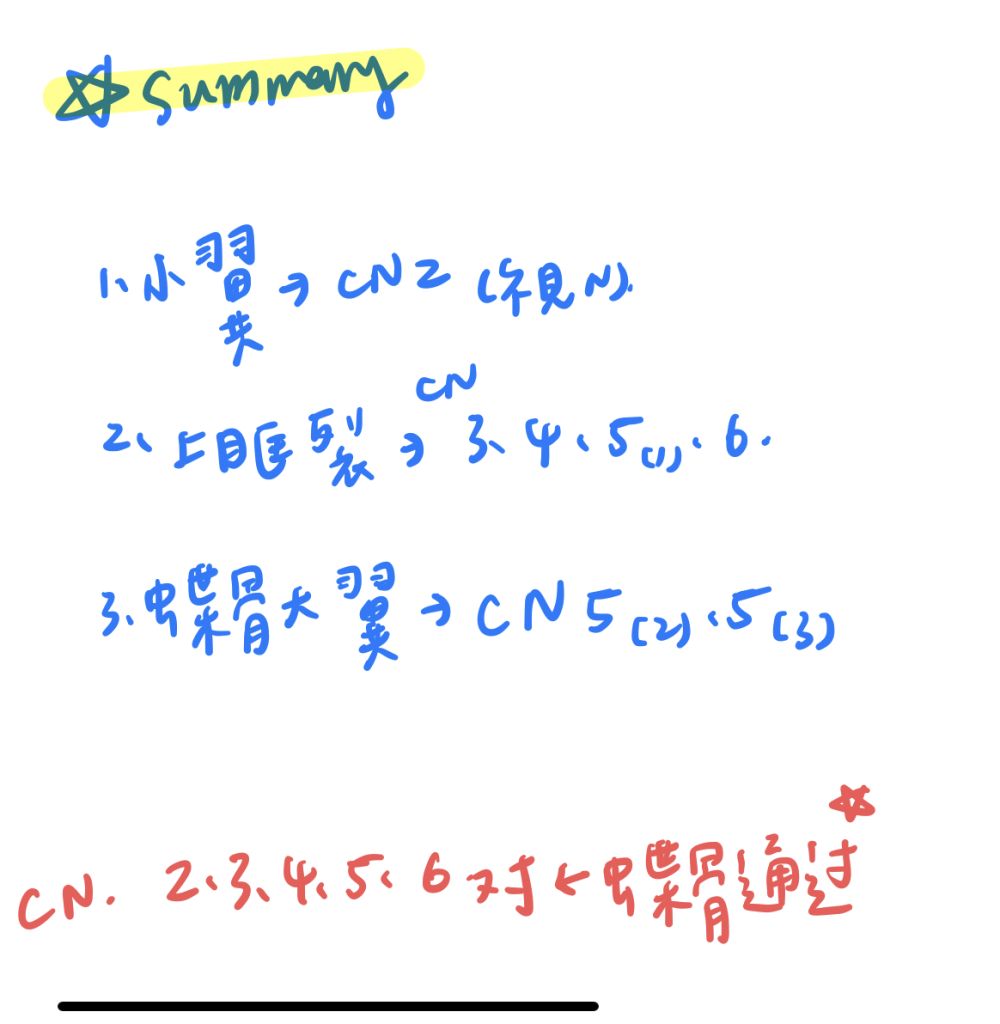 ☆ Summary
1、小翼 → CN2 (視N).
2、上眶裂 → CN 3、4、5(1)、6.
3、蝶骨大翼 → CN 5(2)、5(3)
CN. 2、3、4、5、6 对 ← 蝶骨通过 ☆